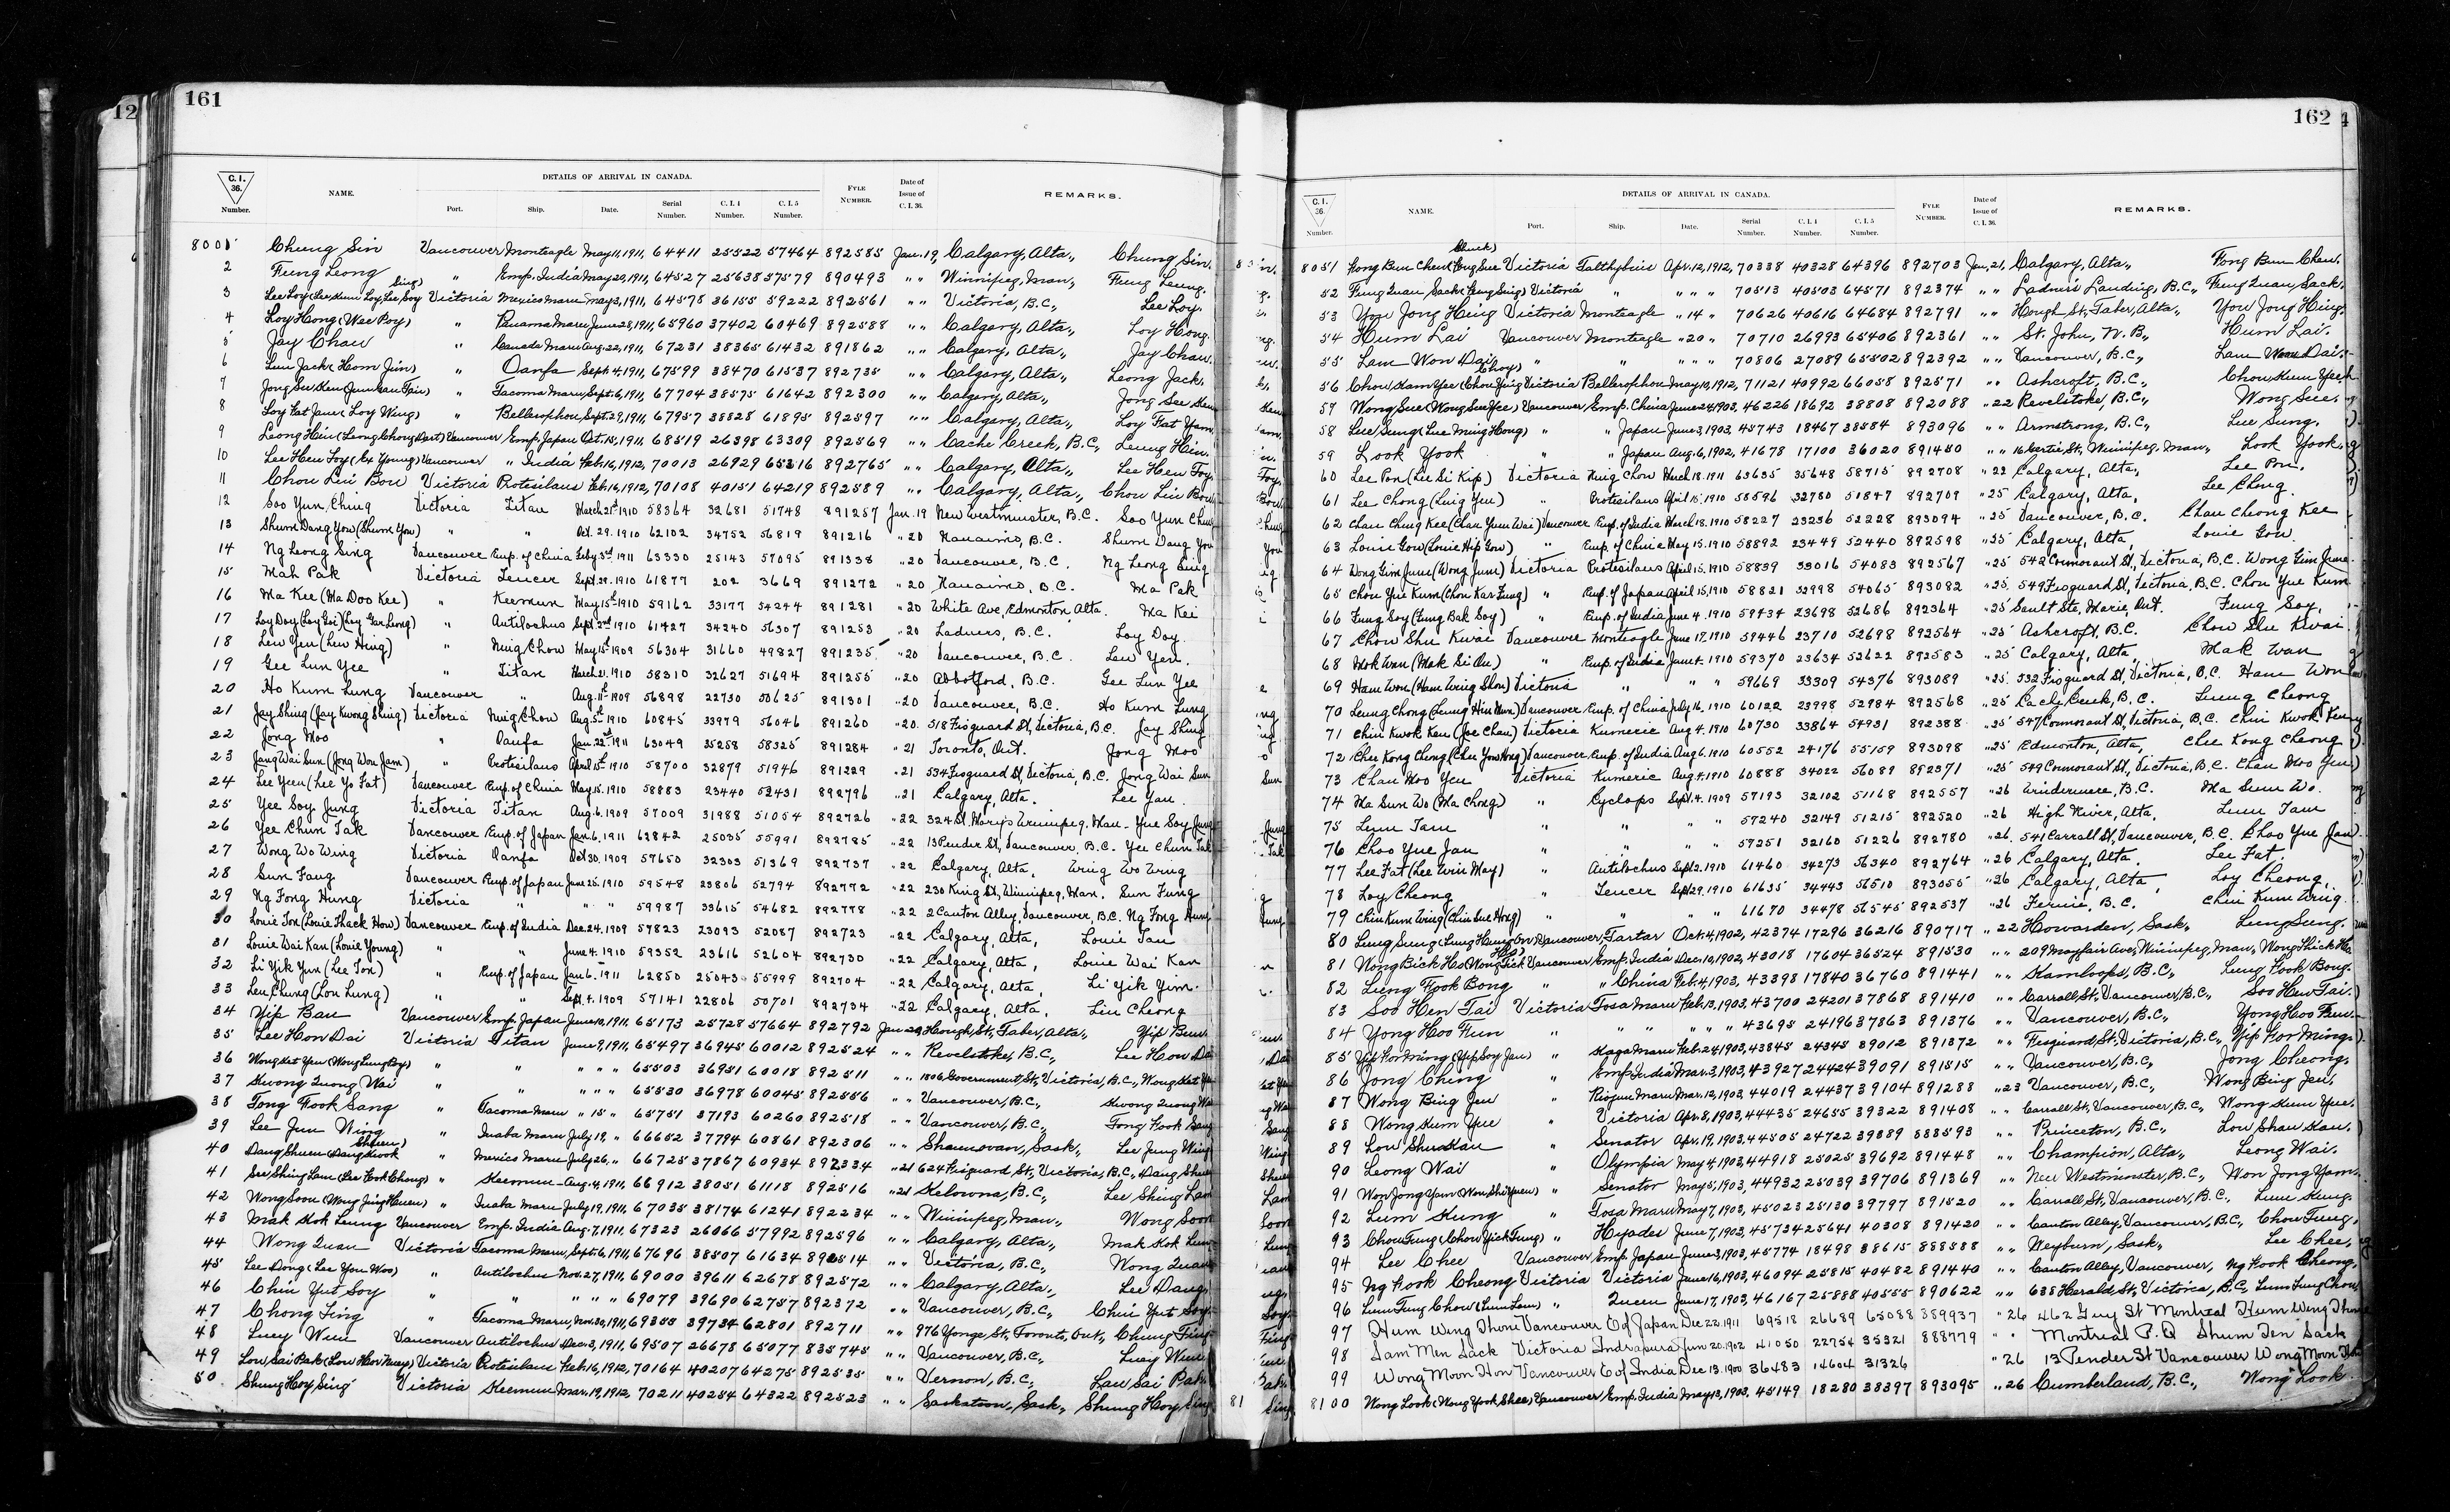 12
161
C. I. 36. Number.
NAME.
DETAILS OF ARRIVAL IN CANADA.
Port. Ship. Date. Serial Number. C. I. 4 Number. C. I. 5 Number.
FYLE NUMBER.
Date of Issue of C. I. 36.
REMARKS.
8001 Chung Sin Vancouver Monteagle May 11, 1911, 64411 25522 57464 892585 Jan. 19, Calgary, Alta., Chung Sin.
2 Fung Leong " Emp. India May 20, 1911, 64527 25638 57579 890493 " " Winnipeg, Man., Fung Leung.
3 Lee Loy (Lee Kum Loy, Lee Soy Sing) Victoria Mexico Maru May 3, 1911, 64578 36155 59222 892561 " " Victoria, B.C., Lee Loy.
4 Loy Hong (Wee Poy) " Panama Maru June 28, 1911, 65960 37402 60469 892588 " " Calgary, Alta., Loy Hong.
5 Jay Chau " Canada Maru Aug. 22, 1911, 67231 38365 61432 891862 " " Calgary, Alta., Jay Chau.
6 Jack (Hom Jim) " Oanfa Sept. 4, 1911, 67599 38470 61537 892735 " " Calgary, Alta., Leong Jack.
7 Jong Su Ken " Tacoma Maru, Sept. 6, 1911, 67704 38575 61642 892300 " " Calgary, Alta., Jong See
8 Loy Fat Jam (Loy Wing) " Bellerophon, Sept. 29, 1911, 67957 38828 61895 892597 " " Calgary, Alta., Loy Fat Yam
9 Leong Hin (Leong Chong Dart) Vancouver Emp. Japan Oct. 15, 1911, 68519 26398 63309 892569 " " Cache Creek, B.C., Leung Hin.
10 Lee Hen Foy (Ex Young) Vancouver " India Feb. 16, 1912, 70013 26929 65316 892765 " " Calgary, Alta., Lee Hen Foy
11 Chou Lin Bow Victoria Protesilaus Feb. 16, 1912, 70108 40151 64219 892589 " " Calgary, Alta., Chou Lin Bow
12 Soo Yun Ching Victoria Titan March 21st 1910 58364 32681 51748 891257 Jan. 19 New Westminster, B.C. Soo Yun
13 Shum Dang You (Shum You) " " Oct. 29. 1910 62102 34752 56819 891216 " 20 Nanaimo, B.C. Shum Dang You
14 Ng Leong Sing Vancouver Emp. of China Feby 3rd 1911 63330 25143 57095 891338 " 20 Vancouver, B.C. Ng Leong Sing
15 Mah Pak Victoria Teucer Sept. 29. 1910 61877 202 3669 891272 " 20 Nanaimo, B.C. Ma Pak
16 Ma Kee (Ma Doo Kee) " Keemun May 15th 1910 59162 33177 54244 891281 " 20 White Ave, Edmonton, Alta. Ma Kei
17 Loy Doy (Loy Goi) (Loy Gar Leong) " Antilochus Sept. 2nd 1910 61427 34240 56307 891253 " 20 Ladners, B.C. Loy Doy.
18 Lew Yen (Lew Hing) " Ning Chow May 15th 1909 56304 31660 49827 891235 " 20 Vancouver, B.C. Lew Yen.
19 Gee Lun Yee " Titan March 21. 1910 58310 32627 51694 891255 " 20 Abbotford, B.C. Gee Lun Yee
20 Ho Kum Lung Vancouver " Aug. 11th 1909 56898 22730 50625 891301 " 20 Vancouver, B.C. Ho Kum Lung
21 Jay Shing (Jay Kwong Shing) Victoria Ning Chow Aug. 5th 1910 60845 33979 56046 891260 " 20 518 Fisguard St, Victoria, B.C. Jay Shing
22 Jong Moo " Oanfa Jan. 22nd 1911 63049 35258 58325 891284 " 21 Toronto, Ont. Jong Moo
23 Jang Wai Sun (Jong Won Jam) " Protesilaus April 15th 1910 58700 32879 51946 891229 " 21 534 Fisguard St, Victoria, B.C. Jong Wai Sun
24 Lee Yeen (Lee Yo Fat) Vancouver Emp. of China May 15. 1910 58883 23440 52431 892796 " 21 Calgary, Alta. Lee Yan.
25 Yee Soy Jung Victoria Titan Aug. 6. 1909 57009 31988 51054 892726 " 22 324 St. Marys Winnipeg, Man - Yue Soy Jung
26 Yee Chun Tak Vancouver Emp. of Japan Jan. 6. 1911 62842 25035 55991 892785 " 22 13 Pender St, Vancouver, B.C. Yee Chun Tak
27 Wong Wo Wing Victoria Oanfa Oct 30. 1909 57650 32303 51369 892737 " 22 Calgary, Alta. Wing Wo Wing
28 Sun Fang Vancouver Emp. of Japan June 25. 1910 59548 23806 52794 892772 " 22 230 King St, Winnipeg, Man. Sun Fung
29 Ng Fong Hung Victoria " " " 59987 33615 54682 892778 " 22 2 Canton Alley, Vancouver, B.C. Ng Fong Hung
30 Louie Ton (Louie Thack How) Vancouver Emp. of India Dec. 24. 1909 57823 23093 52087 892723 " 22 Calgary, Alta, Louie Tan
31 Louie Wai Kan (Louie Young) " " June 4. 1910 59352 23616 52604 892730 " 22 Calgary, Alta, Louie Wai Kan
32 Li Yik Yun (Lee Ton) " Emp. of Japan Jan. 6. 1911 62850 25043 55999 892704 " 22 Calgary, Alta, Li Yik Yim.
33 Leu Chung (Lou Lung) " " Sept. 4. 1909 57141 22806 50701 892734 " 22 Calgary, Alta. Liu Cheong
34 Yip Bau Vancouver Emp. Japan June 10, 1911, 65173 25728 57664 892792 Jan 20, Hough St., Taber, Alta., Yip Bun
35 Lee Hon Dai Victoria Titan June 9, 1911, 65497 36945 60012 892524 " " Revelstoke, B.C., Lee Hon Dai
36 Wong Kat Yen (Wong Lung Poy) " " " " " 65503 36951 60018 892511 " " 1806 Government St., Victoria, B.C., Wong Kat
37 Kwong Quong Wai " " " " " 65530 36978 60045 892556 " " Vancouver, B.C., Kwong Quong Wai
38 Tong Fook Sang " Tacoma Maru " 15 " 65751 37193 60260 892518 " " Vancouver, B.C., Tong Fook Sang
39 Lee Jun Wing " Inaba Maru July 19, " 66652 37794 60861 892306 " " Shaunovan, Sask., Lee Jung Wing
40 Dang Shuen (Dang Kwok Shuen) " Mexico Maru July 26, " 66725 37867 60934 892334 " 21 624 Fisguard St., Victoria, B.C., Dang Shuen
41 See Shing Lam (Lee Fook Chong) " Keemun Aug. 4, 1911, 66912 38051 61118 892516 " 21 Kelowna, B.C., Lee Shing Lam
42 Wong Soon (Wong Jing Huen) " Inaba Maru July 19, 1911, 67035 38174 61241 892234 " " Winnipeg, Man., Wong Soon
43 Mak Kok Leung Vancouver Emp. India Aug. 7, 1911, 67323 26066 57992 892596 " " Calgary, Alta., Mak Kok Leun
44 Wong Quan Victoria Tacoma Maru, Sept. 6, 1911, 67696 38507 61634 892514 " " Victoria, B.C., Wong Quan
45 Lee Dong (Lee You Woo) " Antilochus Nov. 27, 1911, 69000 39611 62678 892572 " " Calgary, Alta., Lee Dang
46 Chin Yut Soy " " " " " 69079 39690 62757 892372 " " Vancouver, B.C., Chin Yut Soy
47 Chong Ting " Tacoma Maru, Nov. 30, 1911, 69355 39734 62801 892711 " " 976 Yonge St., Toronto, Ont., Chung Ting
48 Luey Wun Vancouver Antilochus Dec. 3, 1911, 69507 26678 65077 835745 " " Vancouver, B.C., Luey Wun
49 Lou Sai Pak (Low Hor Nuey) Victoria Protesilaus Feb. 16, 1912, 70164 40207 64275 892535 " " Vernon, B.C., Lau Sai Pak
50 Shung Hoy Sing Victoria Keemun Mar. 19, 1912, 70211 40254 64322 892523 " " Saskatoon, Sask., Shung Hoy Sing
162
C. I. 36. Number.
NAME.
DETAILS OF ARRIVAL IN CANADA.
Port. Ship. Date. Serial Number. C. I. 4 Number. C. I. 5 Number.
FYLE NUMBER.
Date of Issue of C. I. 36.
REMARKS.
8051 Fong Bun Chew (Fong Sue Chuck) Victoria Talthybius Apr. 12, 1912, 70338 40328 64396 892703 Jan. 21, Calgary, Alta., Fong Bun Chew.
52 Fung Quan Sack (Fung Sing) Victoria " " " " 70513 40503 64571 892374 " " Ladners Landing, B.C., Fung Quan Sack.
53 You Jong Hing Victoria Monteagle " 14 " 70626 40616 64684 892791 " " Hough St. Taber, Alta., You Jong Hing.
54 Hum Lai Vancouver Monteagle " 20 " 70710 26993 65406 892361 " " St. John, N.B., Hum Lai.
55 Lam Won Dai " " " " " 70806 27089 65502 892392 " " Vancouver, B.C., Lam Won Dai.
56 Chou Kam Yee (Chou Ying Choy) Victoria Bellerophon May 10, 1912, 71121 40992 66058 892571 " " Ashcroft, B.C., Chou Kum Yee
57 Wong Sue (Wong See Yee) Vancouver Emp. China June 24, 1903, 46226 18692 38808 892088 " 22 Revelstoke, B.C., Wong Sue.
58 Lue Sung (Lue Ming Hong) " " Japan June 3, 1903, 45743 18467 38584 893096 " " Armstrong, B.C., Lue Sung.
59 Look Yook " " Japan Aug. 6, 1902, 41678 17100 36020 891450 " " 16 Bertie St., Winnipeg, Man., Look Yook.
60 Lee Pon (Lee Si Kip) Victoria Ning Chow March 18. 1911 63635 35648 58715 892708 " 22 Calgary, Alta., Lee Pon.
61 Lee Chong (Luig Yeu) " Protesilaus April 15. 1910 58596 32780 51847 892709 " 25 Calgary, Alta, Lee Chong.
62 Chan Chung Kee (Chan Yum Wai) Vancouver Emp. of India March 18. 1910 58227 23236 52228 893094 " 25 Vancouver, B.C. Chan Cheong Kee
63 Louie Gow (Louie Hip Gow) " Emp. of China May 15. 1910 58892 23449 52440 892598 " 25 Calgary, Alta, Louie Gow.
64 Wong Gim June (Wong June) Victoria Protesilaus April 15. 1910 58839 33016 54083 892567 " 25 542 Cormorant St., Victoria, B.C. Wong Gim June
65 Chou Yue Kum (Chou Kar Fung) " Emp. of Japan April 15, 1910 58821 32998 54065 893082 " 25. 549 Fisguard St, Victoria, B.C. Chou Yue Kum
66 Fung Soy (Fung Bak Soy) " Emp. of India June 4. 1910 59434 23698 52686 892364 " 25 Sault Ste. Marie, Ont. Fung Soy,
67 Chow Shu Kwai Vancouver Monteagle June 17, 1910 59446 23710 52698 892564 " 25 Ashcroft, B.C. Chou Shu Kwai
68 Mok Wan (Mak Si Au) " Emp. of India June 4. 1910 59370 23634 52622 892583 " 25 Calgary, Alta, Mak Wan
69 Ham Won (Ham Wing Shou) Victoria " " " 59669 33309 54376 893089 " 25. 532 Fisguard St, Victoria, B.C. Ham Won
70 Leung Chong (Leung Hin Nun) Vancouver Emp. of China July 16. 1910 60122 23998 52984 892568 " 25 Cachy Creek, B.C. Leung Cheong
71 Chin Kwok Ken (Joe Chan) Victoria Kumeric Aug. 4. 1910 60730 33864 54931 892388 " 25 547 Cormorant St, Victoria, B.C. Chin Kwok
72 Chee Kong Chong (Chee Yow Hong) Vancouver Emp. of India Aug 6. 1910 60552 24176 55159 893098 " 25 Edmonton, Alta, Chee Kong Cheong
73 Chan Woo Yeu Victoria Kumeric Aug. 4. 1910 60888 34022 56089 892371 " 25 549 Cormorant St, Victoria, B.C. Chan Woo Yeu
74 Ma Sun Wo (Ma Chong) " Cyclops Sept. 4. 1909 57193 32102 51168 892557 " 26 Windermere, B.C. Ma Sum Wo.
75 Lum Tam " " " " 57240 32149 51215 892520 " 26 High River, Alta. Lum Tam
76 Choo Yue Jan " " " " 57251 32160 51226 892780 " 26. 541 Carrall St, Vancouver, B.C. Choo Yue Jan
77 Lee Fat (Lee Win May) " Antilochus Sept 2. 1910 61460 34273 56340 892764 " 26 Calgary, Alta. Lee Fat.
78 Loy Cheong " Teucer Sept 29. 1910 61635 34443 56510 893055 " 26 Calgary, Alta, Loy Cheong,
79 Chin Kum Wing (Chin Sue Hong) " " " " 61670 34478 56545 892537 " 26 Fernie, B.C. Chin Kum Wing.
80 Lung Sung (Lung Hung On) Vancouver Tartar Oct. 4, 1902, 42374 17296 36216 890717 " 22 Howarden, Sask., Lung Sung.
81 Wong Bick Ho (Wong Tick Hop) Vancouver Emp. India Dec. 10, 1902, 43018 17604 36524 891530 " " 209 Mayfair Ave., Winnipeg, Man., Wong Thick
82 Lung Fook Bong " " China Feb. 4, 1903, 43398 17840 36760 891441 " " Kamloops, B.C., Lung Fook Bong.
83 Soo Hen Tai Victoria Tosa Maru Feb. 13, 1903, 43700 24201 37868 891410 " " Carrall St., Vancouver, B.C., Soo Hen Tai.
84 Yong Hoo Fun " " " " " 43695 24196 37863 891376 " " Vancouver, B.C., Yong Hoo Fun.
85 Yip Hor Ming (Yip Soy Jan) " Kaga Maru Feb. 24, 1903, 43845 24345 39012 891372 " " Fisguard St., Victoria, B.C., Yip Hor Ming.
86 Jong Ching " Emp. India Mar. 3, 1903, 43927 24424 39091 891515 " " Vancouver, B.C., Jong Cheong.
87 Wong Bing Jeu " Riojun Maru Mar. 12, 1903, 44019 24437 39104 891288 " 23 Vancouver, B.C., Wong Bing Jeu.
88 Wong Kum Yue " Victoria Apr. 8, 1903, 44435 24655 39322 891408 " " Carrall St., Vancouver, B.C., Wong Kum Yue.
89 Lou Shu Kau " Senator Apr. 19, 1903, 44505 24722 39389 888593 " " Princeton, B.C., Lou Shau Kau.
90 Leong Wai " Olympia May 4, 1903, 44918 25025 39692 891448 " " Champion, Alta., Leong Wai.
91 Won Jong Yam (Won Shi Yuen) " Senator May 5, 1903, 44932 25039 39706 891369 " " New Westminster, B.C., Won Jong Yam.
92 Lum Kung " Tosa Maru May 7, 1903, 45023 25130 39797 891520 " " Carrall St., Vancouver, B.C., Lum Kung.
93 Chou Fung (Chou Yick Fung) " Hyades June 7, 1903, 45734 25641 40308 891420 " " Canton Alley, Vancouver, B.C., Chou Fung.
94 Lee Chee Vancouver Emp. Japan June 3, 1903, 45774 18498 38615 888588 " " Weyburn, Sask., Lee Chee,
95 Ng Kook Cheong Victoria Victoria June 16, 1903, 46094 25815 40482 891440 " " Canton Alley, Vancouver, Ng Kook Cheong.
96 Lum Fung Chou (Lum Lam) " Queen June 17, 1903, 46167 25888 40555 890622 " " 638 Herald St., Victoria, B.C., Lum Fung Chou.
97 Hum Wing Thone Vancouver E of Japan Dec 22. 1911 69518 26689 65088 389937 " 26 462 Guy St Montreal Hum Wing
98 Sam Men Sack Victoria Indrapura Jun 20. 1902 41050 22754 35321 888779 " " Montreal P.Q Shum Ten Sack
99 Wong Moon Hon Vancouver E of India Dec 13. 1900 36483 14604 31326 " 26 13 Pender St Vancouver Wong Moon
8100 Wong Look (Wong Yook Shee) Vancouver Emp. India May 13, 1903, 45149 18280 38397 893095 " 26 Cumberland, B.C., Wong Look.